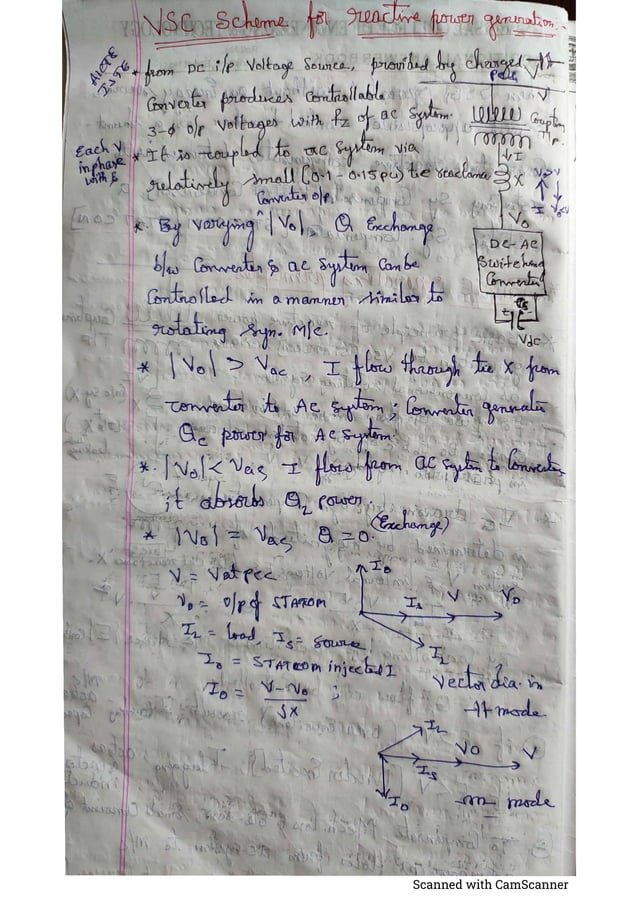 VSC Scheme for reactive power generation.
* from DC i/p Voltage Source, provided by charged
Converter produces Controllable
3-ϕ o/p Voltages with fz of ac System.
Each V
in phase
with
* It is coupled to ac System via
relatively small (0.1 - 0.15 pu) tie reactance
Converter o/p.
* By varying ^ |Vo|, Q Exchange
b/w Converter & ac System Can be
Controlled in a manner similar to
rotating syn. M/c.
* |Vo| > Vac, I flow through tie X from
converter to AC system; Converter generates
Qc power for AC system.
* |Vo| < Vac, I flow from ac system to Converter,
it absorbs QL power.
(Exchange)
* |Vo| = Vac, Q = 0.
V = V at pcc
Vo = o/p of STATCOM
IL = load, Is = source
Io = STATCOM injected I
Io = V - Vo / jX ;
V
Coupling
T/F.
I
X
Vo
DC-AC
Switching
Converter
Cs
+ -
Vdc
Io
Is V Vo
IL
Vector dia. in
mode
IL
Vo V
Is
Io
mode
Scanned with CamScanner